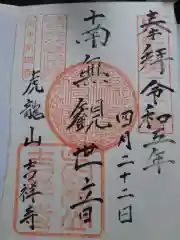 奉拝令和五年
四月二十二日
南無観世音
虎龍山吉祥寺